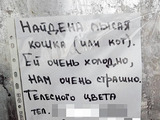 НАЙДЕНА ЛЫСАЯ
КОШКА (ИЛИ КОТ).
ЕЙ ОЧЕНЬ ХОЛОДНО,
НАМ ОЧЕНЬ СТРАШНО.
ТЕЛЕСНОГО ЦВЕТА
ТЕЛ.